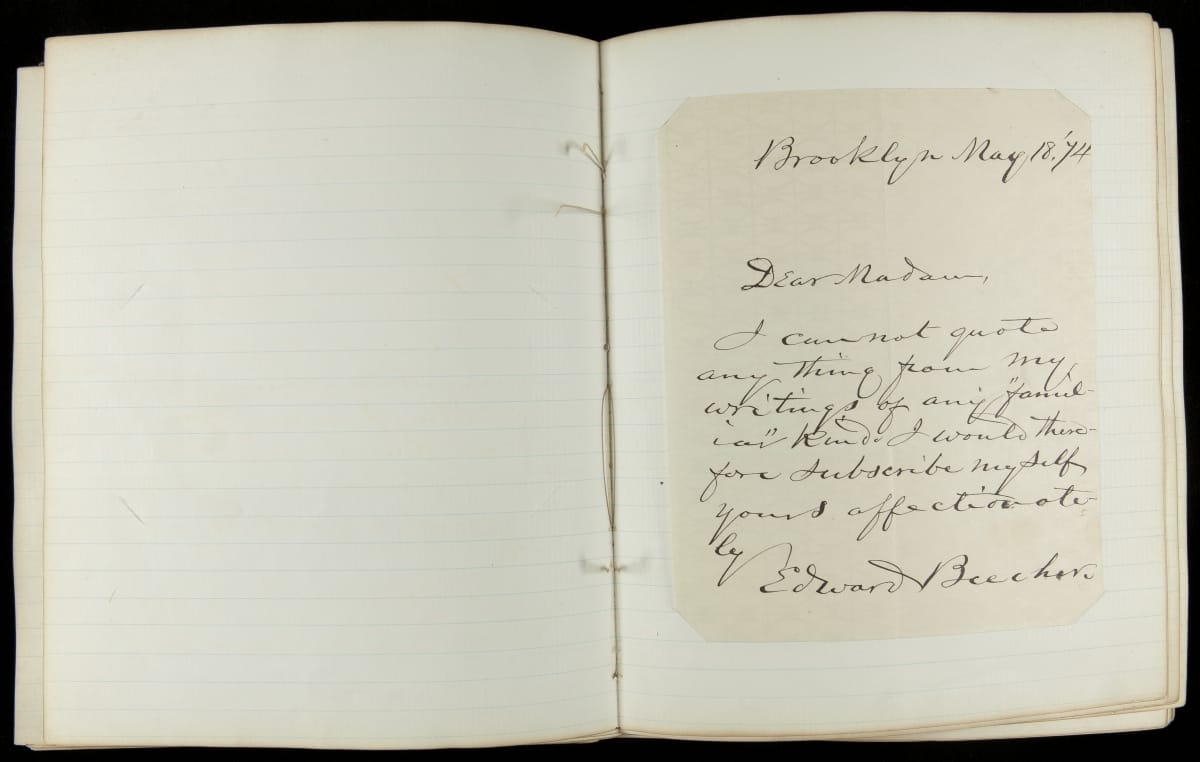 Brooklyn May 18,'74
Dear Madam,
I cannot quote
any thing from my
writings of any "famil-
iar" kind. I would there-
fore subscribe myself
yours affectionate-
ly
Edward Beecher.